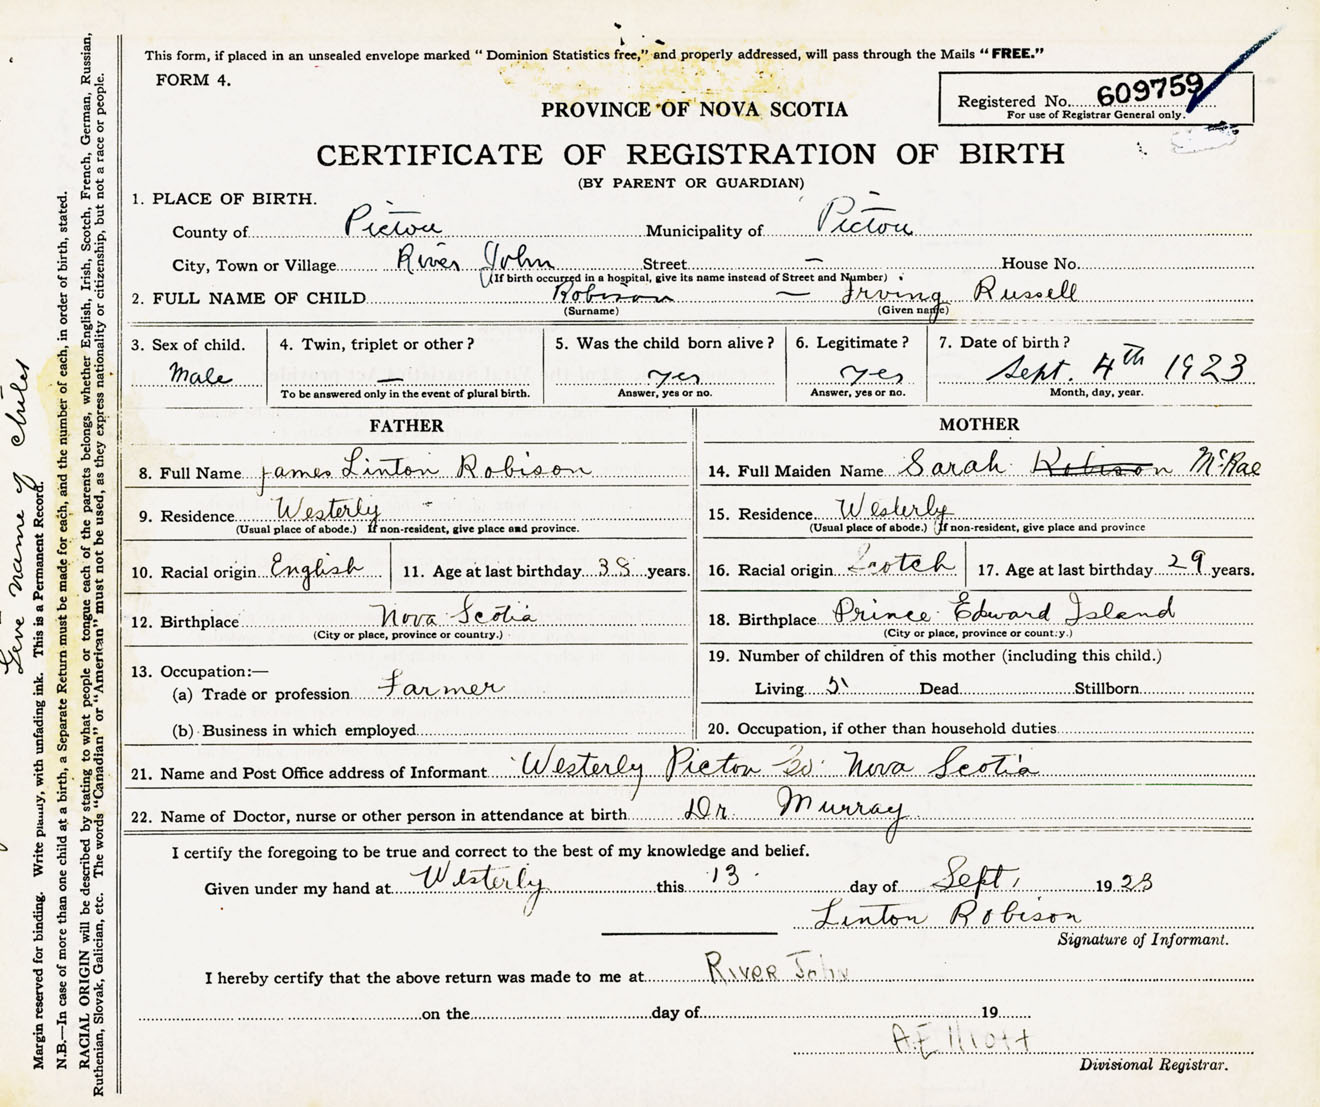 This form, if placed in an unsealed envelope marked "Dominion Statistics free," and properly addressed, will pass through the Mails "FREE."
FORM 4.
Registered No. 609759
For use of Registrar General only.
PROVINCE OF NOVA SCOTIA
CERTIFICATE OF REGISTRATION OF BIRTH
(BY PARENT OR GUARDIAN)
1. PLACE OF BIRTH.
County of Pictou Municipality of Pictou
City, Town or Village River John Street — House No.
(If birth occurred in a hospital, give its name instead of Street and Number)
2. FULL NAME OF CHILD Robison — Irving Russell
(Surname) (Given name)
3. Sex of child. 4. Twin, triplet or other? 5. Was the child born alive? 6. Legitimate? 7. Date of birth?
Male — yes yes Sept. 4th 1923
To be answered only in the event of plural birth. Answer, yes or no. Answer, yes or no. Month, day, year.
FATHER MOTHER
8. Full Name James Linton Robison 14. Full Maiden Name Sarah Robison McRae
9. Residence Westerly 15. Residence Westerly
(Usual place of abode.) If non-resident, give place and province. (Usual place of abode.) If non-resident, give place and province
10. Racial origin English 11. Age at last birthday 38 years. 16. Racial origin Scotch 17. Age at last birthday 29 years.
12. Birthplace Nova Scotia 18. Birthplace Prince Edward Island
(City or place, province or country.) (City or place, province or country.)
13. Occupation:— 19. Number of children of this mother (including this child.)
(a) Trade or profession Farmer Living 5 Dead Stillborn
(b) Business in which employed 20. Occupation, if other than household duties
21. Name and Post Office address of Informant Westerly Pictou Co. Nova Scotia
22. Name of Doctor, nurse or other person in attendance at birth Dr. Murray
I certify the foregoing to be true and correct to the best of my knowledge and belief.
Given under my hand at Westerly this 13 day of Sept. 1923
Linton Robison
Signature of Informant.
I hereby certify that the above return was made to me at River John
on the day of 19
A. Elliott
Divisional Registrar.
Give name of child
Margin reserved for binding. Write plainly, with unfading ink. This is a Permanent Record.
N.B.—In case of more than one child at a birth, a Separate Return must be made for each, and the number of each, in order of birth, stated.
RACIAL ORIGIN will be described by stating to what people or tongue each of the parents belongs, whether English, Irish, Scotch, French, German, Russian,
Ruthenian, Slovak, Galician, etc. The words "Canadian" or "American" must not be used, as they express nationality or citizenship, but not a race or people.